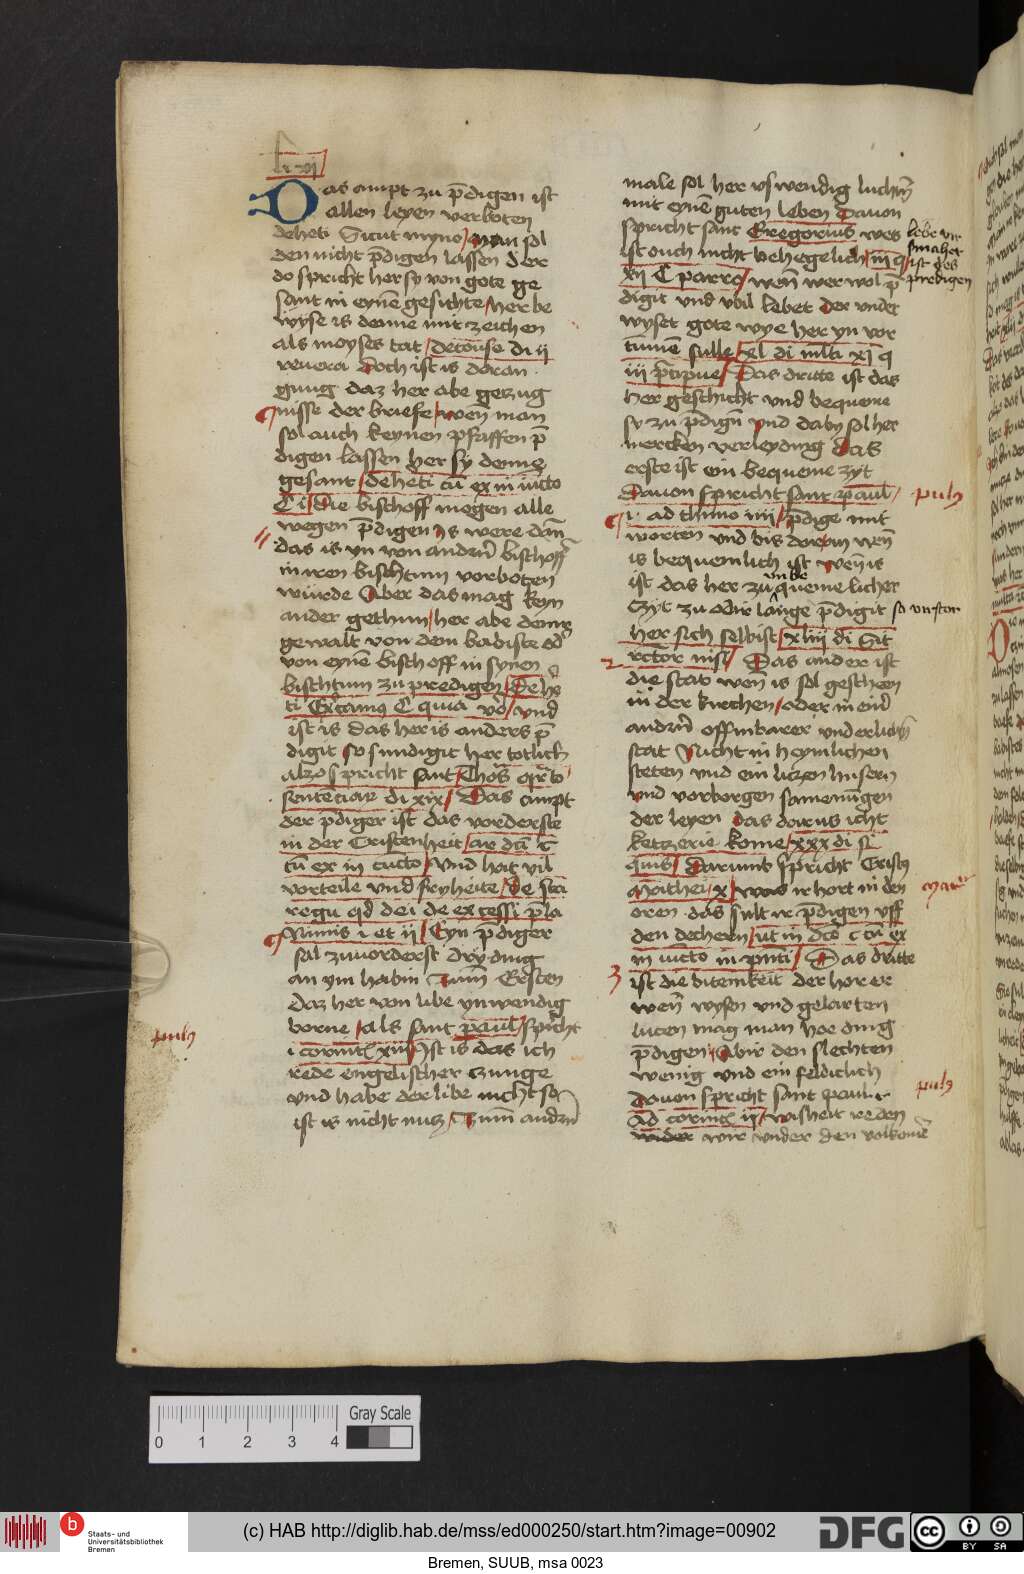 lxxvj
Das ampt zu p̄digen ist
allen leyen verboten
deheti Sicut in vno / man sol
den nicht p̄digen lassen der
do spricht her sy von gote ge
sant in eynē gesichte / her be
wyse is denne mit zeichen
als moyses tat / de cōuse di ij
reuera doch ist is daran
gnug daz her abe geczug
nisse der briefe / wen man
sol auch keynen pfaffen p̄
digen lassen her sy denne
gesant / deheti cū ex in iūcto
C i / die bischoff mogen alle
wegen p̄digen is were dan̄
das is yn von andern̄ bischoff
in iren bischtum vorboten
wurde Aber das mag keyn
ander gethun / her abe denne
gewalt von dem babiste od
von eynē bischoff in synen
bischtum zu predigen / De he
ti Excōmus C quia vo / vnd
ist is das her is anders p̄
digit so sundigit her totlich
alzo spricht sant Thoͣs qrͣto
sentēciar di xix / Das ampt
der p̄diger ist das vorderste
in der Cristenheit / ar dcī c
tū ex in cūcto / vnd hat vil
vorteile vnd fryheite / de sta
regu qd dei de excessi p̄la
Nimis i et ij / Eyn p̄diger
sal zuuorderst dry ding
an ym habin Zum Ersten
daz her von libe ynwendig
borne / als sant paul / spicht
i corinth xiii / Ist is das ich
rede engelischer czunge
vnd habe der libe nicht so
ist is nicht nutz / Zum andern
puls
male sol her vswendig luchtn̄
mit eynē guten leben Dauon
spricht sant Gregorius wes
ist ouch nicht behegelich / iij q
xij C parro / wen̄ wer wol p̄
digit vnd vbil lebet der vnder
wyset gote wye her yn vor
tumē sulle / xl di mlta xj q
iij p̄cipue / Das dritte ist das
her geschicht vnd bequeme
sy zu p̄dign̄ vnd daby sol her
mercken verleydung Das
erste ist ein bequeme zyt
Dauon spricht sant paul /
i ad thimo iiij / p̄dige mit
worten vnd bis dor an wen̄
is bequemlich ist wen̄ is
ist das her zu vnbe queme licher
czyt zu odir lange p̄digit so vr stor
her sich selbist / xliij di Sit
rctor nisi / Das ander ist
die stat wen̄ is sol gescheen
in der kirchen / oder in eir̄
andrn̄ offinbarer vnd erlichn̄
stat Nicht in heymlichen
steten vnd ein liczen husern
vnd vorborgen samenungen
der leyen das dorus icht
ketzerie kome / xxx di si
quis / Darumb spricht Cristus
Mathei / x / was ir hort in den
oren das sult ir p̄digen vff
den dechern / ut in dcō c cū ex
in iūcto in pncti / Das dritte
ist die bitemkeit der horer
wen̄ wysen vnd gelarten
luten mag man hoe ding
p̄digen / Abir den slechten
wenig vnd ein feldiclich
dauon spricht sant paulir
Ad corinth ij / wisheit reden
wider wir vnder den volkomē
lebē vir
smahet
ist des
predigen
puls
2
Mat
3
puls
0 1 2 3 4
Gray Scale
Staats- und
Universitätsbibliothek
Bremen
(c) HAB http://diglib.hab.de/mss/ed000250/start.htm?image=00902
DFG
cc BY SA
Bremen, SUUB, msa 0023